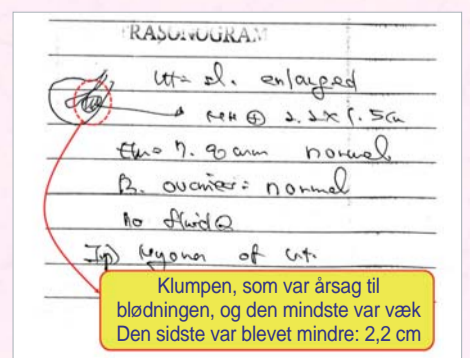 RASONOGRAM
Ut= sl. enlarged
⊕ 2.2 x 1.5cm
7.9 normal
B. ovaries: normal
no fluid
Imp) of ut.
Klumpen, som var årsag til
blødningen, og den mindste var væk
Den sidste var blevet mindre: 2,2 cm